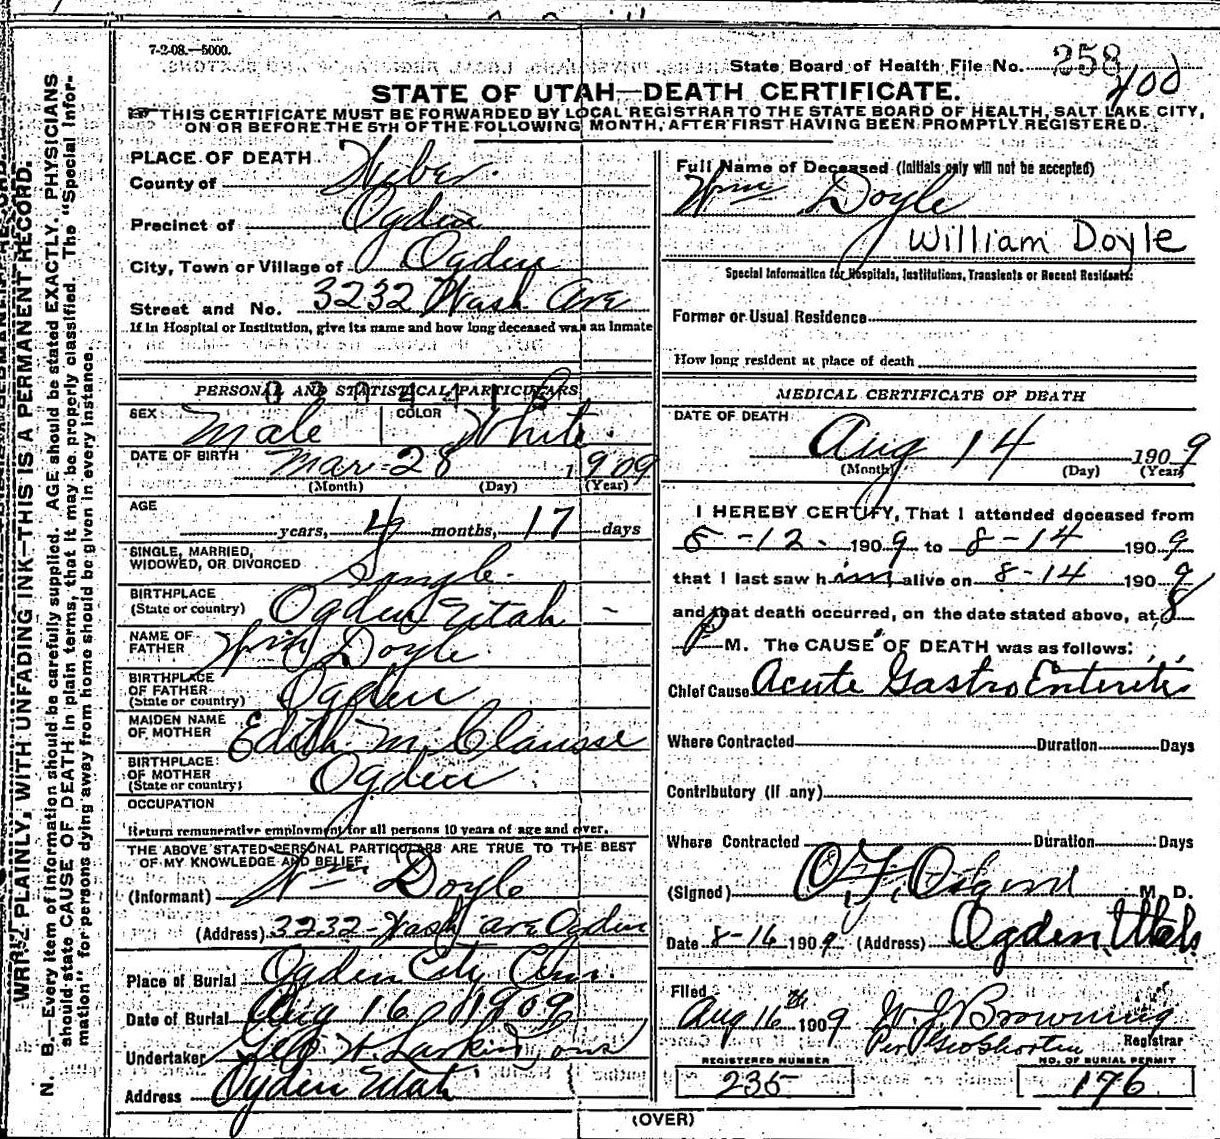 7-2-08.—5000.
State Board of Health File No. 258
400
STATE OF UTAH—DEATH CERTIFICATE.
THIS CERTIFICATE MUST BE FORWARDED BY LOCAL REGISTRAR TO THE STATE BOARD OF HEALTH, SALT LAKE CITY,
ON OR BEFORE THE 5TH OF THE FOLLOWING MONTH, AFTER FIRST HAVING BEEN PROMPTLY REGISTERED.
N. B.—Every item of information should be carefully supplied. AGE should be stated EXACTLY. PHYSICIANS
should state CAUSE OF DEATH in plain terms, that it may be properly classified. The "Special Infor-
mation" for persons dying away from home should be given in every instance.
WRITE PLAINLY, WITH UNFADING INK—THIS IS A PERMANENT RECORD.
PLACE OF DEATH
County of Weber.
Precinct of Ogden
City, Town or Village of Ogden
Street and No. 3232 Wash Ave
If in Hospital or Institution, give its name and how long deceased was an inmate
PERSONAL AND STATISTICAL PARTICULARS
SEX Male COLOR White.
DATE OF BIRTH Mar - 28 1909
(Month) (Day) (Year)
AGE
years, 4 months, 17 days
SINGLE, MARRIED,
WIDOWED, OR DIVORCED Single.
BIRTHPLACE
(State or country) Ogden Utah
NAME OF
FATHER Wm Doyle
BIRTHPLACE
OF FATHER
(State or country) Ogden
MAIDEN NAME
OF MOTHER Edith M. Clausse
BIRTHPLACE
OF MOTHER
(State or country) Ogden
OCCUPATION
Return remunerative employment for all persons 10 years of age and over.
THE ABOVE STATED PERSONAL PARTICULARS ARE TRUE TO THE BEST
OF MY KNOWLEDGE AND BELIEF.
(Informant) Wm Doyle
(Address) 3232 - Wash ave Ogden
Place of Burial Ogden City Cem.
Date of Burial Aug 16 1909
Undertaker Geo W. Larkin Sons
Address Ogden Utah
Full Name of Deceased (Initials only will not be accepted)
Wm Doyle
William Doyle
Special Information for Hospitals, Institutions, Transients or Recent Residents:
Former or Usual Residence
How long resident at place of death
MEDICAL CERTIFICATE OF DEATH
DATE OF DEATH
Aug 14 1909
(Month) (Day) (Year)
I HEREBY CERTIFY, That I attended deceased from
8-12- 1909 to 8-14 1909
that I last saw him alive on 8-14 1909
and that death occurred, on the date stated above, at 8
P M. The CAUSE OF DEATH was as follows:
Chief Cause Acute Gastro Enteritis
Where Contracted Duration Days
Contributory (if any)
Where Contracted Duration Days
(Signed) O.F. Osgood M. D.
Date 8-16 1909 (Address) Ogden, Utah
Filed
Aug 16th 1909 W. J. Browning
Per Geo Shorten Registrar
REGISTERED NUMBER NO. OF BURIAL PERMIT
235 176
(OVER)